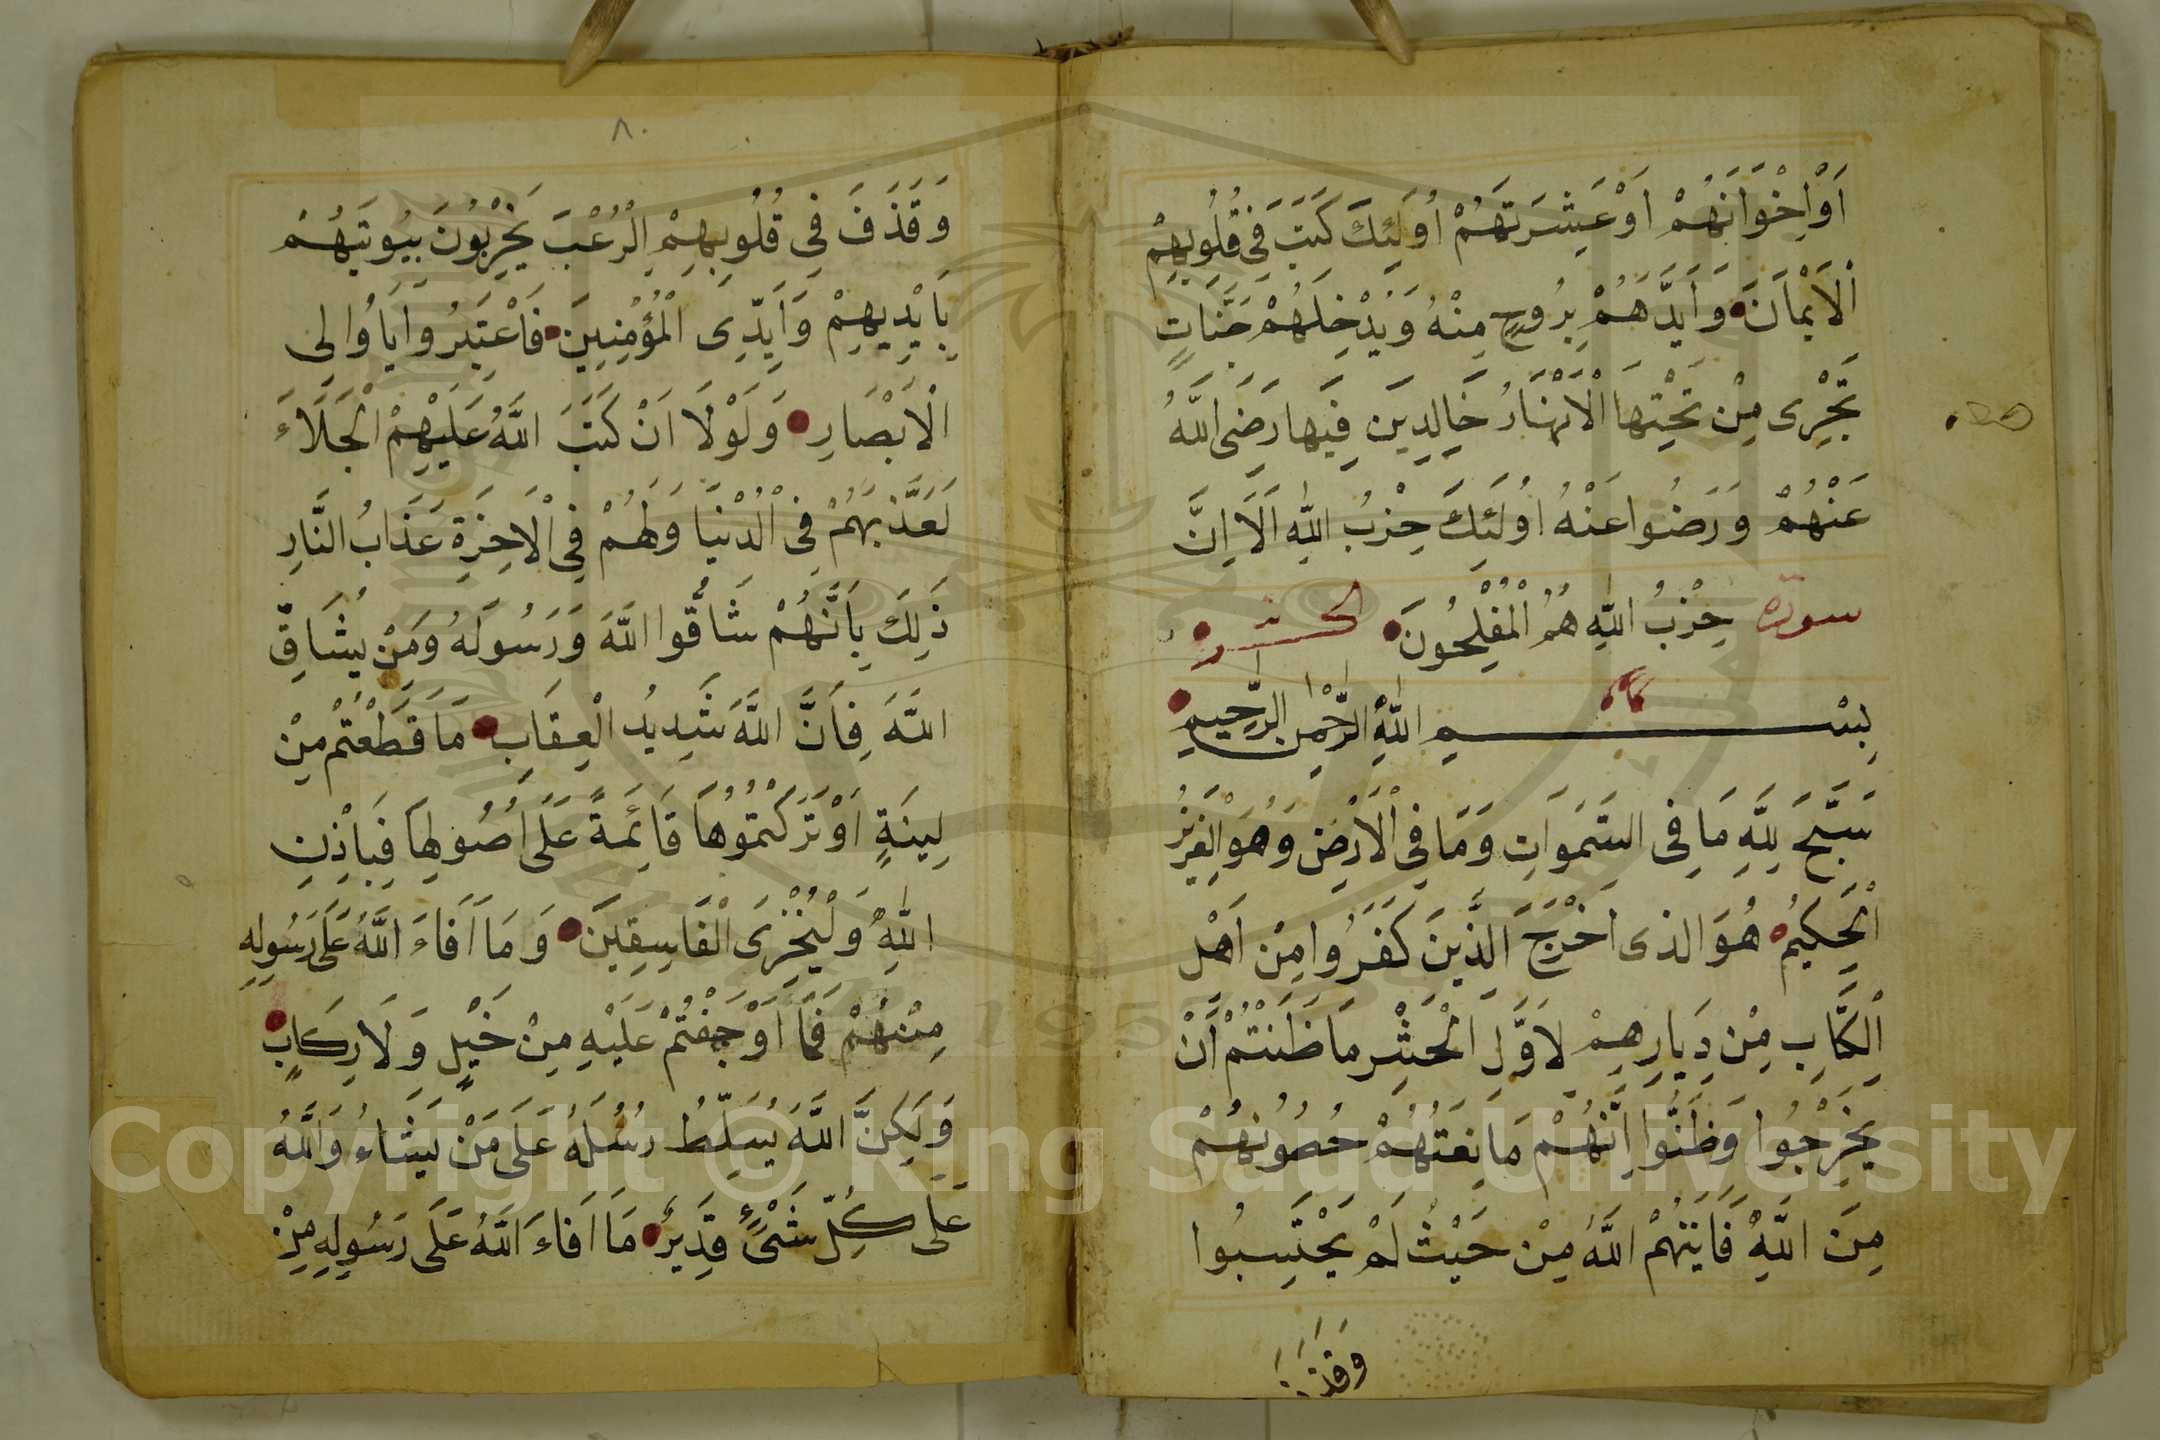 اَوْ اِخْوَانَهُمْ اَوْ عَشِيرَتَهُمْ اُولَئِكَ كَتَبَ فِى قُلُوبِهِمْ
الْاِيْمَانَ وَاَيَّدَهُمْ بِرُوحٍ مِنْهُ وَيُدْخِلُهُمْ جَنَّاتٍ
تَجْرِى مِنْ تَحْتِهَا الْاَنْهَارُ خَالِدِينَ فِيهَا رَضِىَ اللَّهُ
عَنْهُمْ وَرَضُوا عَنْهُ اُولَئِكَ حِزْبُ اللَّهِ اَلَا اِنَّ
سورة حِزْبُ اللَّهِ هُمُ الْمُفْلِحُونَ الحشر
بِسْمِ اللَّهِ الرَّحْمٰنِ الرَّحِيمِ
سَبَّحَ لِلَّهِ مَا فِى السَّمَوَاتِ وَمَا فِى الْاَرْضِ وَهُوَ الْعَزِيزُ
الْحَكِيمُ هُوَ الذى اَخْرَجَ الَّذِينَ كَفَرُوا مِنْ اَهْلِ
الْكِتَابِ مِنْ دِيَارِهِمْ لِاَوَّلِ الْحَشْرِ مَا ظَنَنْتُمْ اَنْ
يَخْرُجُوا وَظَنُّوا اِنَّهُمْ مَانِعَتُهُمْ حُصُونُهُمْ
مِنَ اللَّهِ فَاَتَيهُمُ اللَّهُ مِنْ حَيْثُ لَمْ يَحْتَسِبُوا
وَقَذَفَ
٨٠
وَقَذَفَ فِى قُلُوبِهِمُ الرُّعْبَ يُخْرِبُونَ بُيُوتَهُمْ
بِاَيْدِيهِمْ وَاَيْدِى الْمُؤْمِنِينَ فَاعْتَبِرُوا يَا اُولِى
الْاَبْصَارِ وَلَوْلَا اَنْ كَتَبَ اللَّهُ عَلَيْهِمُ الْجَلَاءَ
لَعَذَّبَهُمْ فِى الْدُنْيَا وَلَهُمْ فِى الْاَخِرَةِ عَذَابُ النَّارِ
ذَلِكَ بِاَنَّهُمْ شَاقُّوا اللَّهَ وَرَسُولَهُ وَمَنْ يُشَاقِّ
اللَّهَ فَاِنَّ اللَّهَ شَدِيدُ الْعِقَابِ مَا قَطَعْتُمْ مِنْ
لِينَةٍ اَوْ تَرَكْتُمُوهَا قَائِمَةً عَلَى اُصُولِهَا فَبِاِذْنِ
اللَّهِ وَلِيُخْزِىَ الْفَاسِقِينَ وَمَا اَفَاءَ اللَّهُ عَلَى رَسُولِهِ
مِنْهُمْ فَمَا اَوْجَفْتُمْ عَلَيْهِ مِنْ خَيْلٍ وَلَا رِكَابٍ
وَلَكِنَّ اللَّهَ يُسَلِّطُ رُسُلَهُ عَلَى مَنْ يَشَاءُ وَاللَّهُ
عَلَى كُلِّ شَىْءٍ قَدِيرٌ مَا اَفَاءَ اللَّهُ عَلَى رَسُولِهِ مِنْ
Copyright © King Saud University
195